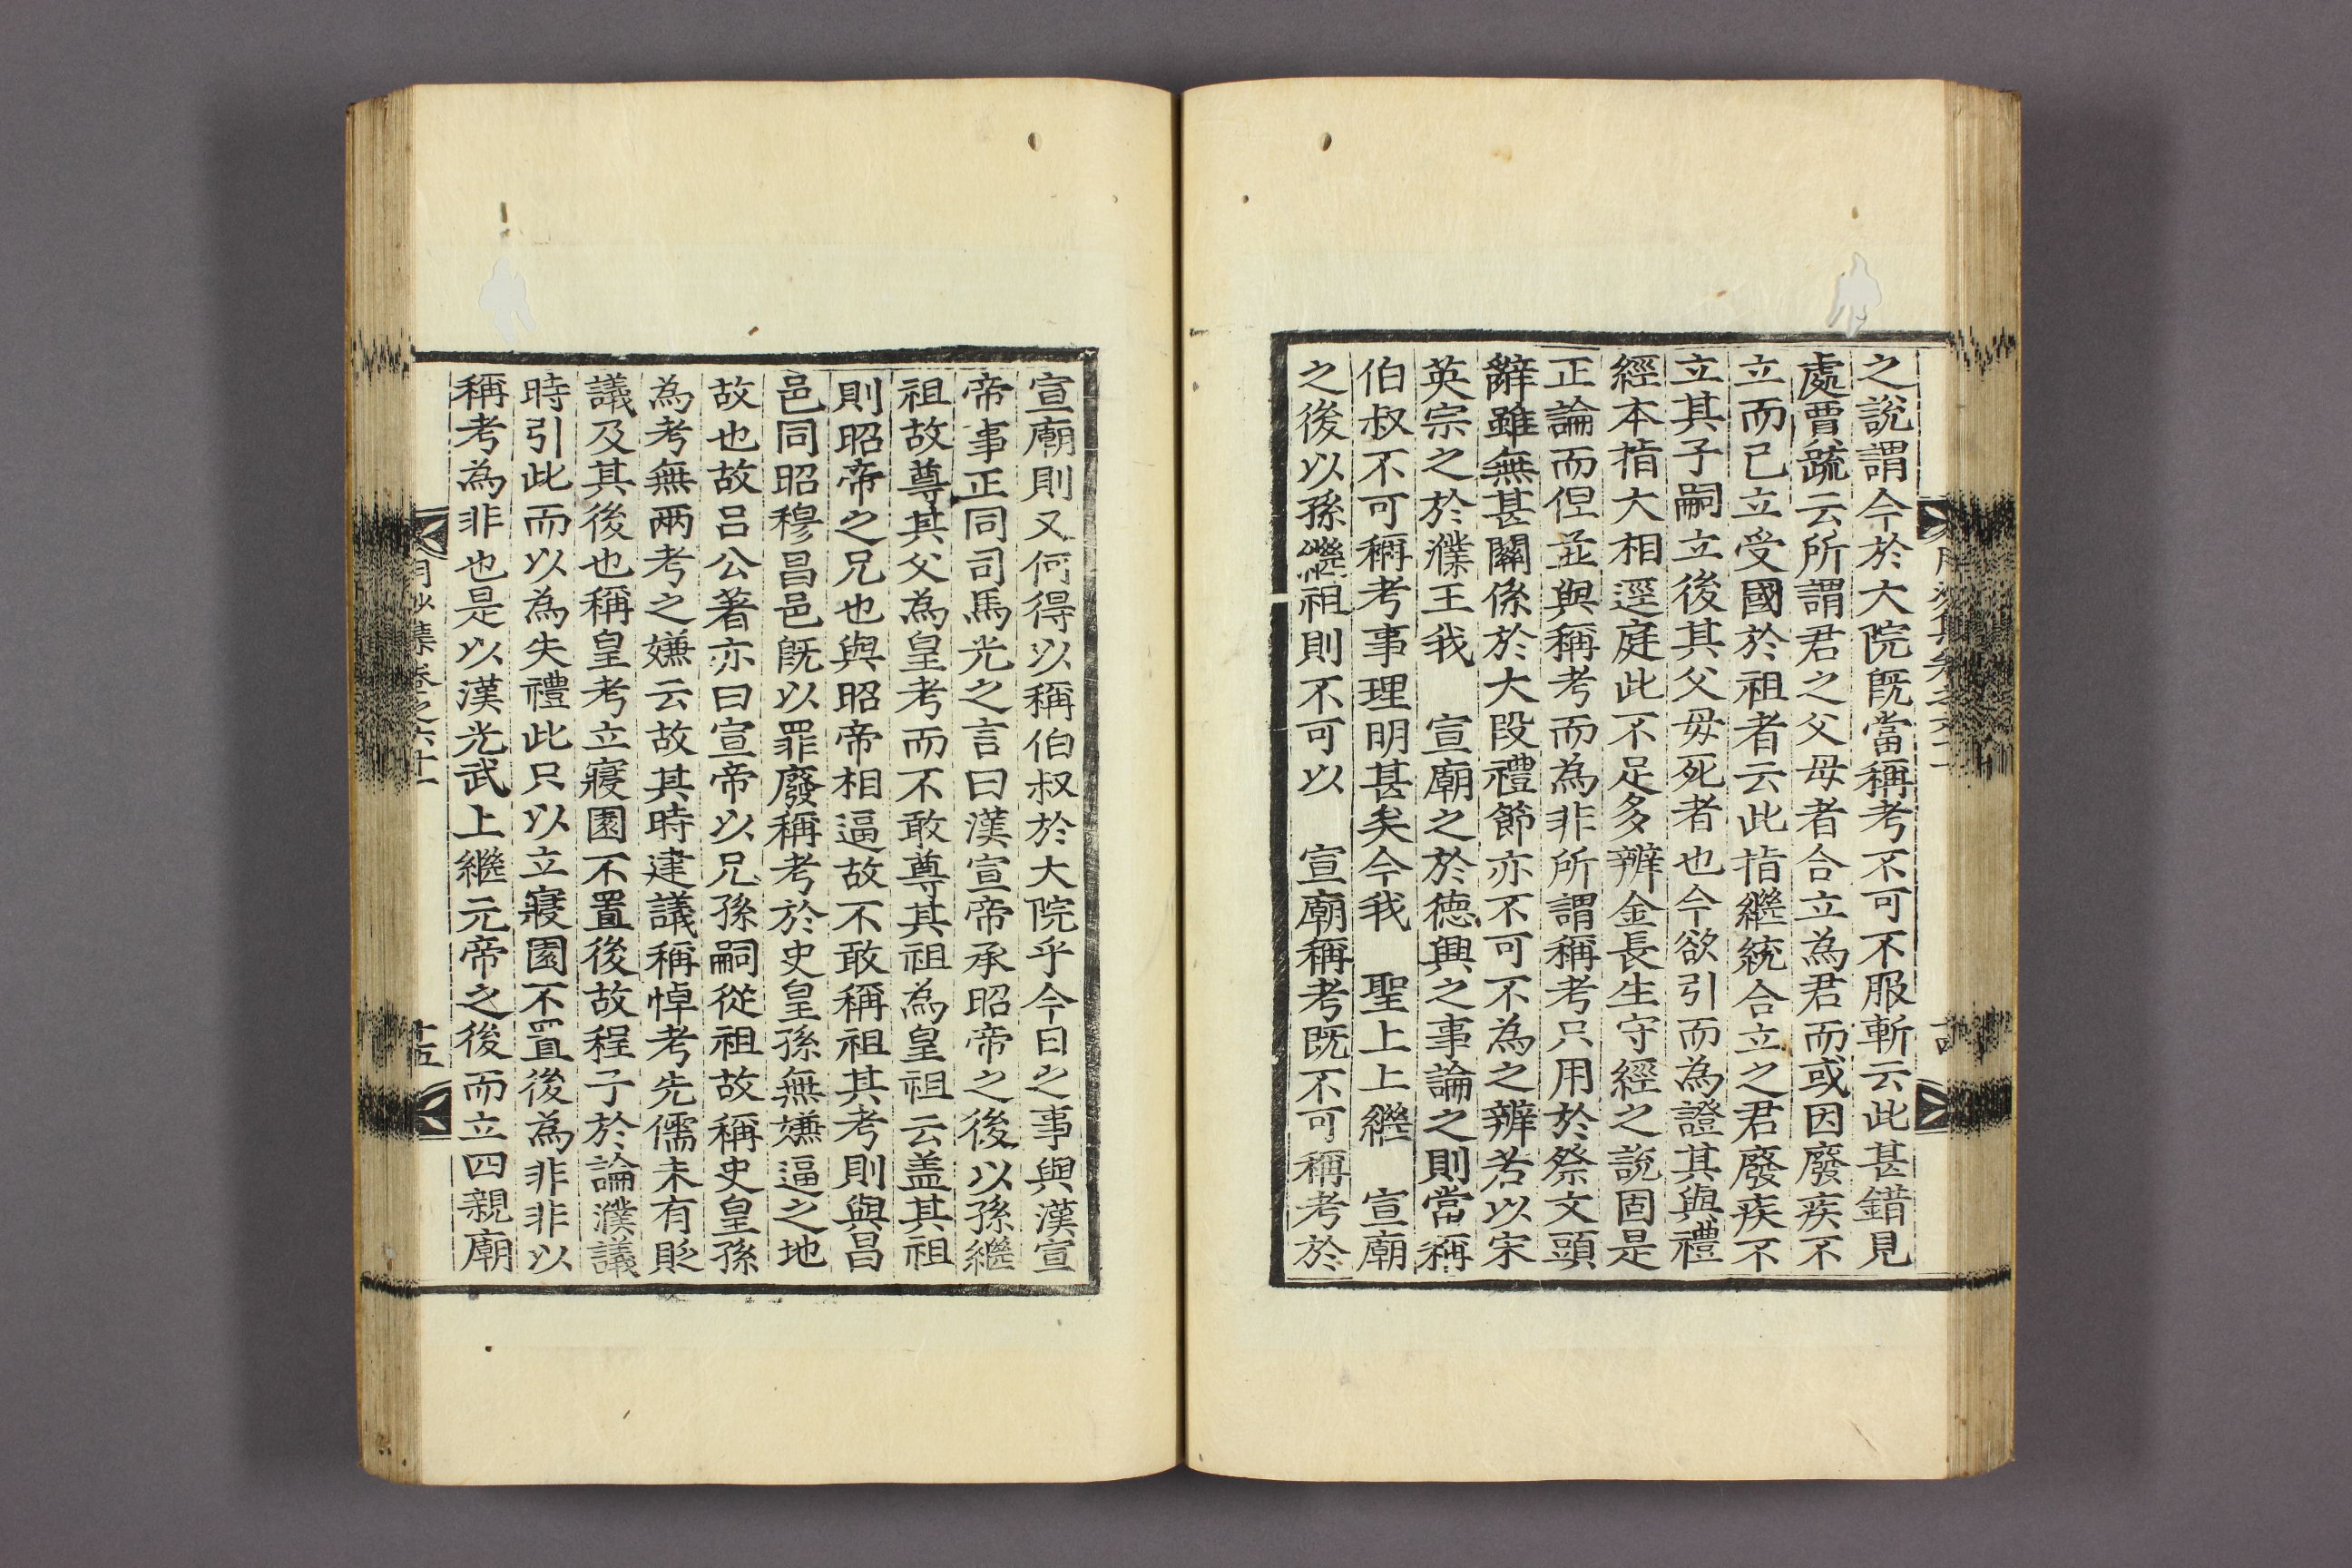 之說謂今於大院旣當稱考不可不服斬云此甚錯見
處賈疏云所謂君之父母者合立為君而或因廢疾不
立而已立受國於祖者云此指繼統合立之君廢疾不
立其子嗣立後其父母死者也今欲引而為證其與禮
經本楷大相逕庭此不足多辨金長生守經之說固是
正論而但並與稱考而為非所謂稱考只用於祭文頭
辭雖無甚關係於大段禮節亦不可不為之辨若以宋
英宗之於濮王我 宣廟之於德興之事論之則當稱
伯叔不可稱考事理明甚矣今我 聖上上繼 宣廟
之後以孫繼祖則不可以 宣廟稱考旣不可稱考於
宣廟則又何得以稱伯叔於大院乎今日之事與漢宣
帝事正同司馬光之言曰漢宣帝承昭帝之後以孫繼
祖故尊其父為皇考而不敢尊其祖為皇祖云盖其祖
則昭帝之兄也與昭帝相逼故不敢稱祖其考則與昌
邑同昭穆昌邑旣以罪廢稱考於史皇孫無嫌逼之地
故也故呂公著亦曰宣帝以兄孫嗣從祖故稱史皇孫
為考無兩考之嫌云故其時建議稱悼考先儒未有貶
議及其後也稱皇考立寢園不置後故程子於論濮議
時引此而以為失禮此只以立寢園不置後為非非以
稱考為非也是以漢光武上繼元帝之後而立四親廟
月沙集卷之六十一
十五